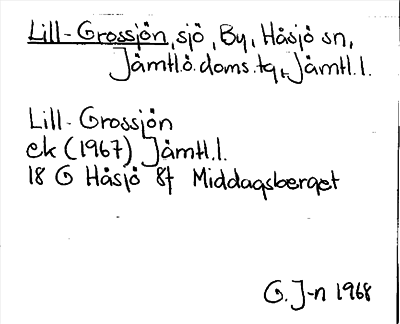 Lill-Grossjön, sjö, By, Håsjö sn,
Jämtl.ö.doms.tg, Jämtl.l.
Lill-Grossjön
ek (1967) Jämtl.l.
18 G Håsjö 8f Middagsberget
G. J-n 1968